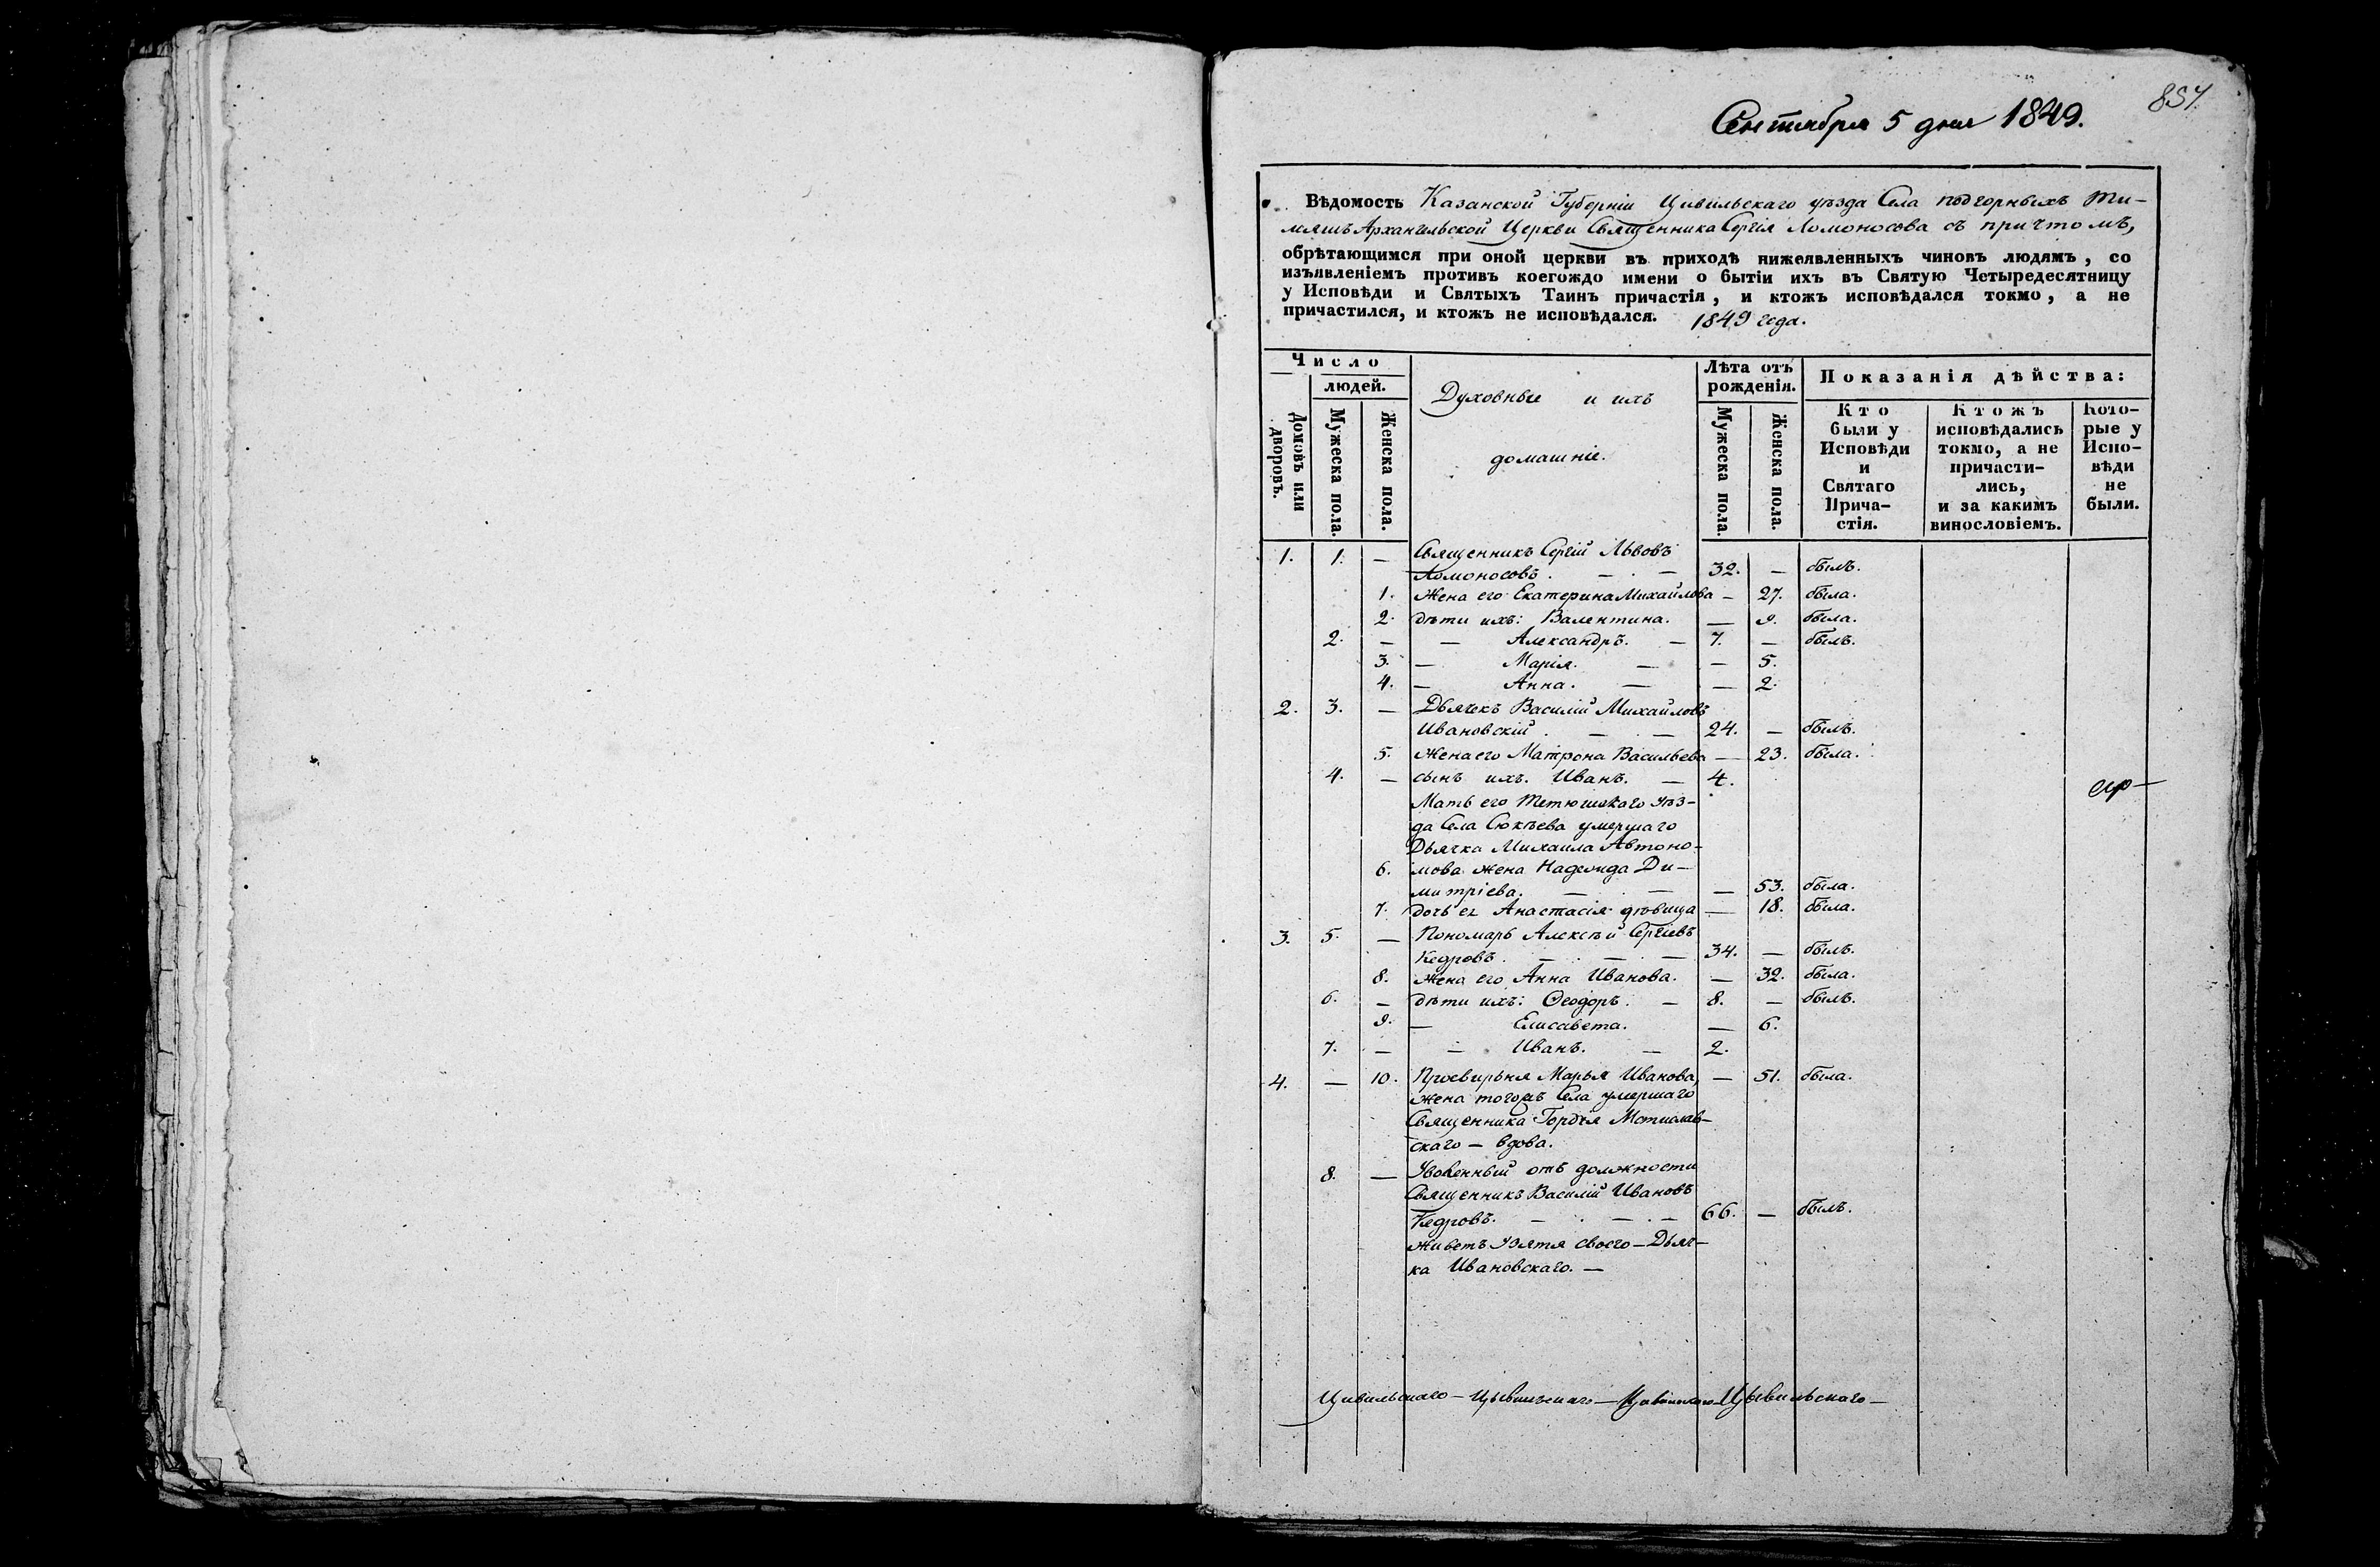 857.
Сентября 5 дня 1849.
Вѣдомость Казанской Губерніи Цивильскаго уѣзда Села подгорныхъ Ти-
мяшъ Архангельской Церкви Священника Сергія Ломоносова съ причтомъ,
обрѣтающимся при оной церкви въ приходѣ нижеявленныхъ чиновъ людямъ, со
изъявленіемъ противъ коегождо имени о бытіи ихъ въ Святую Четыредесятницу
у Исповѣди и Святыхъ Таинъ причастія, и ктожъ исповѣдался токмо, а не
причастился, и ктожъ не исповѣдался. 1849 года.
Число
людей.
Домовъ или дворовъ.
Мужеска пола.
Женска пола.
Духовные и ихъ
домашніе.
Лѣта отъ
рожденія.
Мужеска пола.
Женска пола.
Показанія дѣйства:
Кто
были у
Исповѣди
и
Святаго
Прича-
стія.
Ктожъ
исповѣдались
токмо, а не
причасти-
лись,
и за какимъ
винословіемъ.
Кото-
рые у
Испо-
вѣди
не
были.
1. 1. — Священникъ Сергій Львовъ
Ломоносовъ. — . — 32. — былъ.
1. Жена его Екатерина Михайлова — 27. была.
2. дѣти ихъ: Валентина. — 9. была.
2. — — Александръ. — 7. — былъ.
3. — Марія. — — 5.
4. — Анна. — — 2.
2. 3. — Дьячекъ Василій Михайловъ
Ивановскій . — . — 24. — былъ.
5. Жена его Матрона Васильева — 23. была.
4. — сынъ ихъ. Иванъ. — 4.
Мать его Тетюшскаго уѣз-
да Села Сюкѣева умершаго
Дьячка Михаила Автоно-
6. мова жена Надежда Ди-
митріева. — . — — 53. была.
7. дочь ея Анастасія дѣвица — 18. была.
3. 5. — Пономарь Алексѣй Сергіевъ
Кедровъ . — . — . — 34. — былъ.
8. Жена его Анна Иванова. — 32. была.
6. — дѣти ихъ: Ѳеодоръ. — 8. — былъ.
9. — Елисавета. — 6.
7. — — Иванъ. — 2.
4. — 10. Просвирьня Марья Иванова, — 51. была.
жена тогожъ Села умершаго
Священника Гордѣя Мстислав-
скаго — вдова.
8. — Уволенный отъ должности
Священникъ Василій Ивановъ
Кедровъ. — . — . — 66. — былъ.
живетъ у зятя своего — Дьяч-
ка Ивановскаго. —
Цивильскаго — Цывильскаго — Цивильскаго — Цывильскаго —